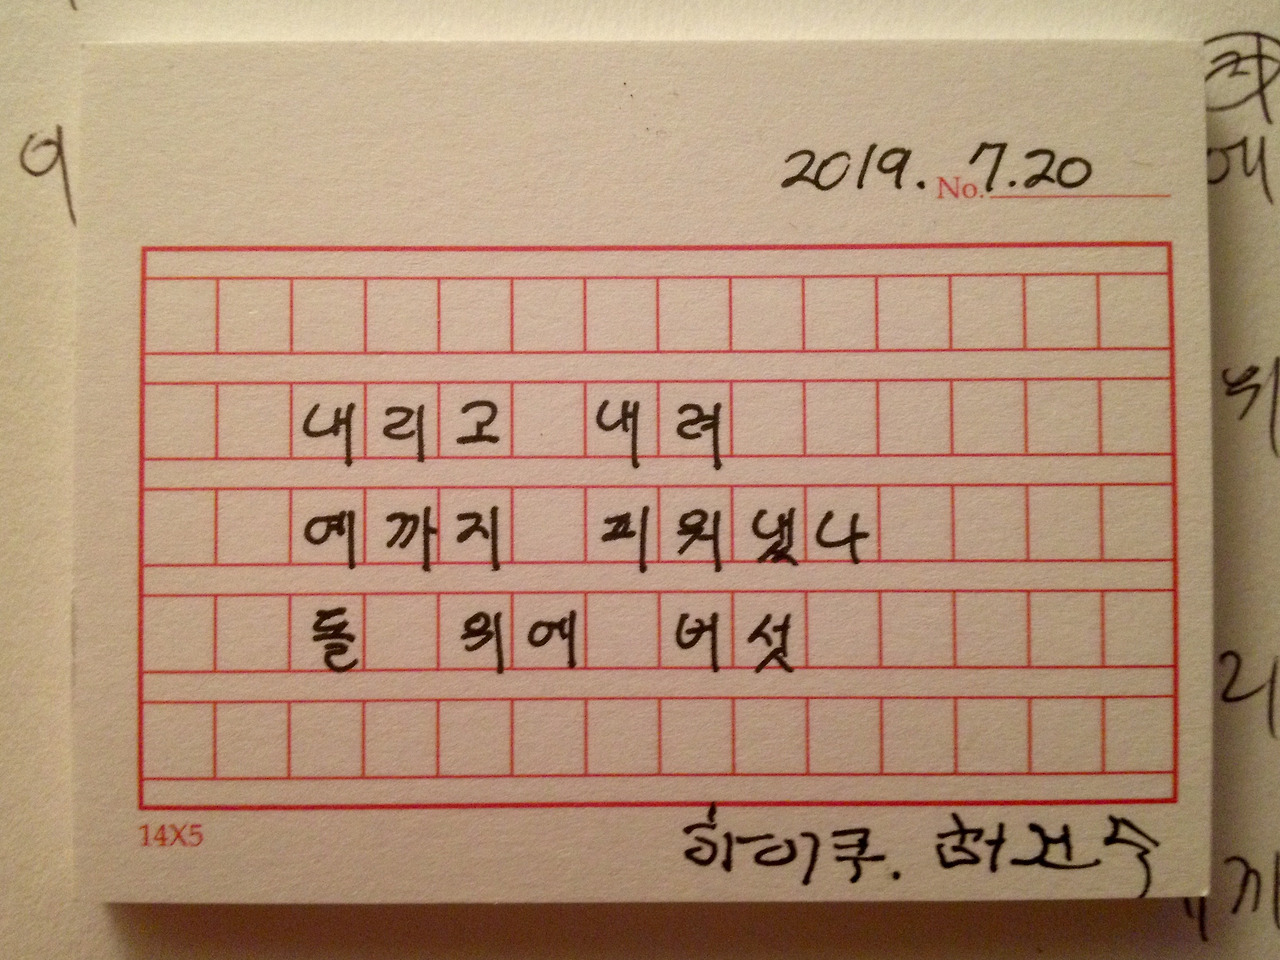 2019. No. 7.20
내리고 내려
예까지 피워냈나
돌 위에 버섯
14X5
하이쿠. 허건수